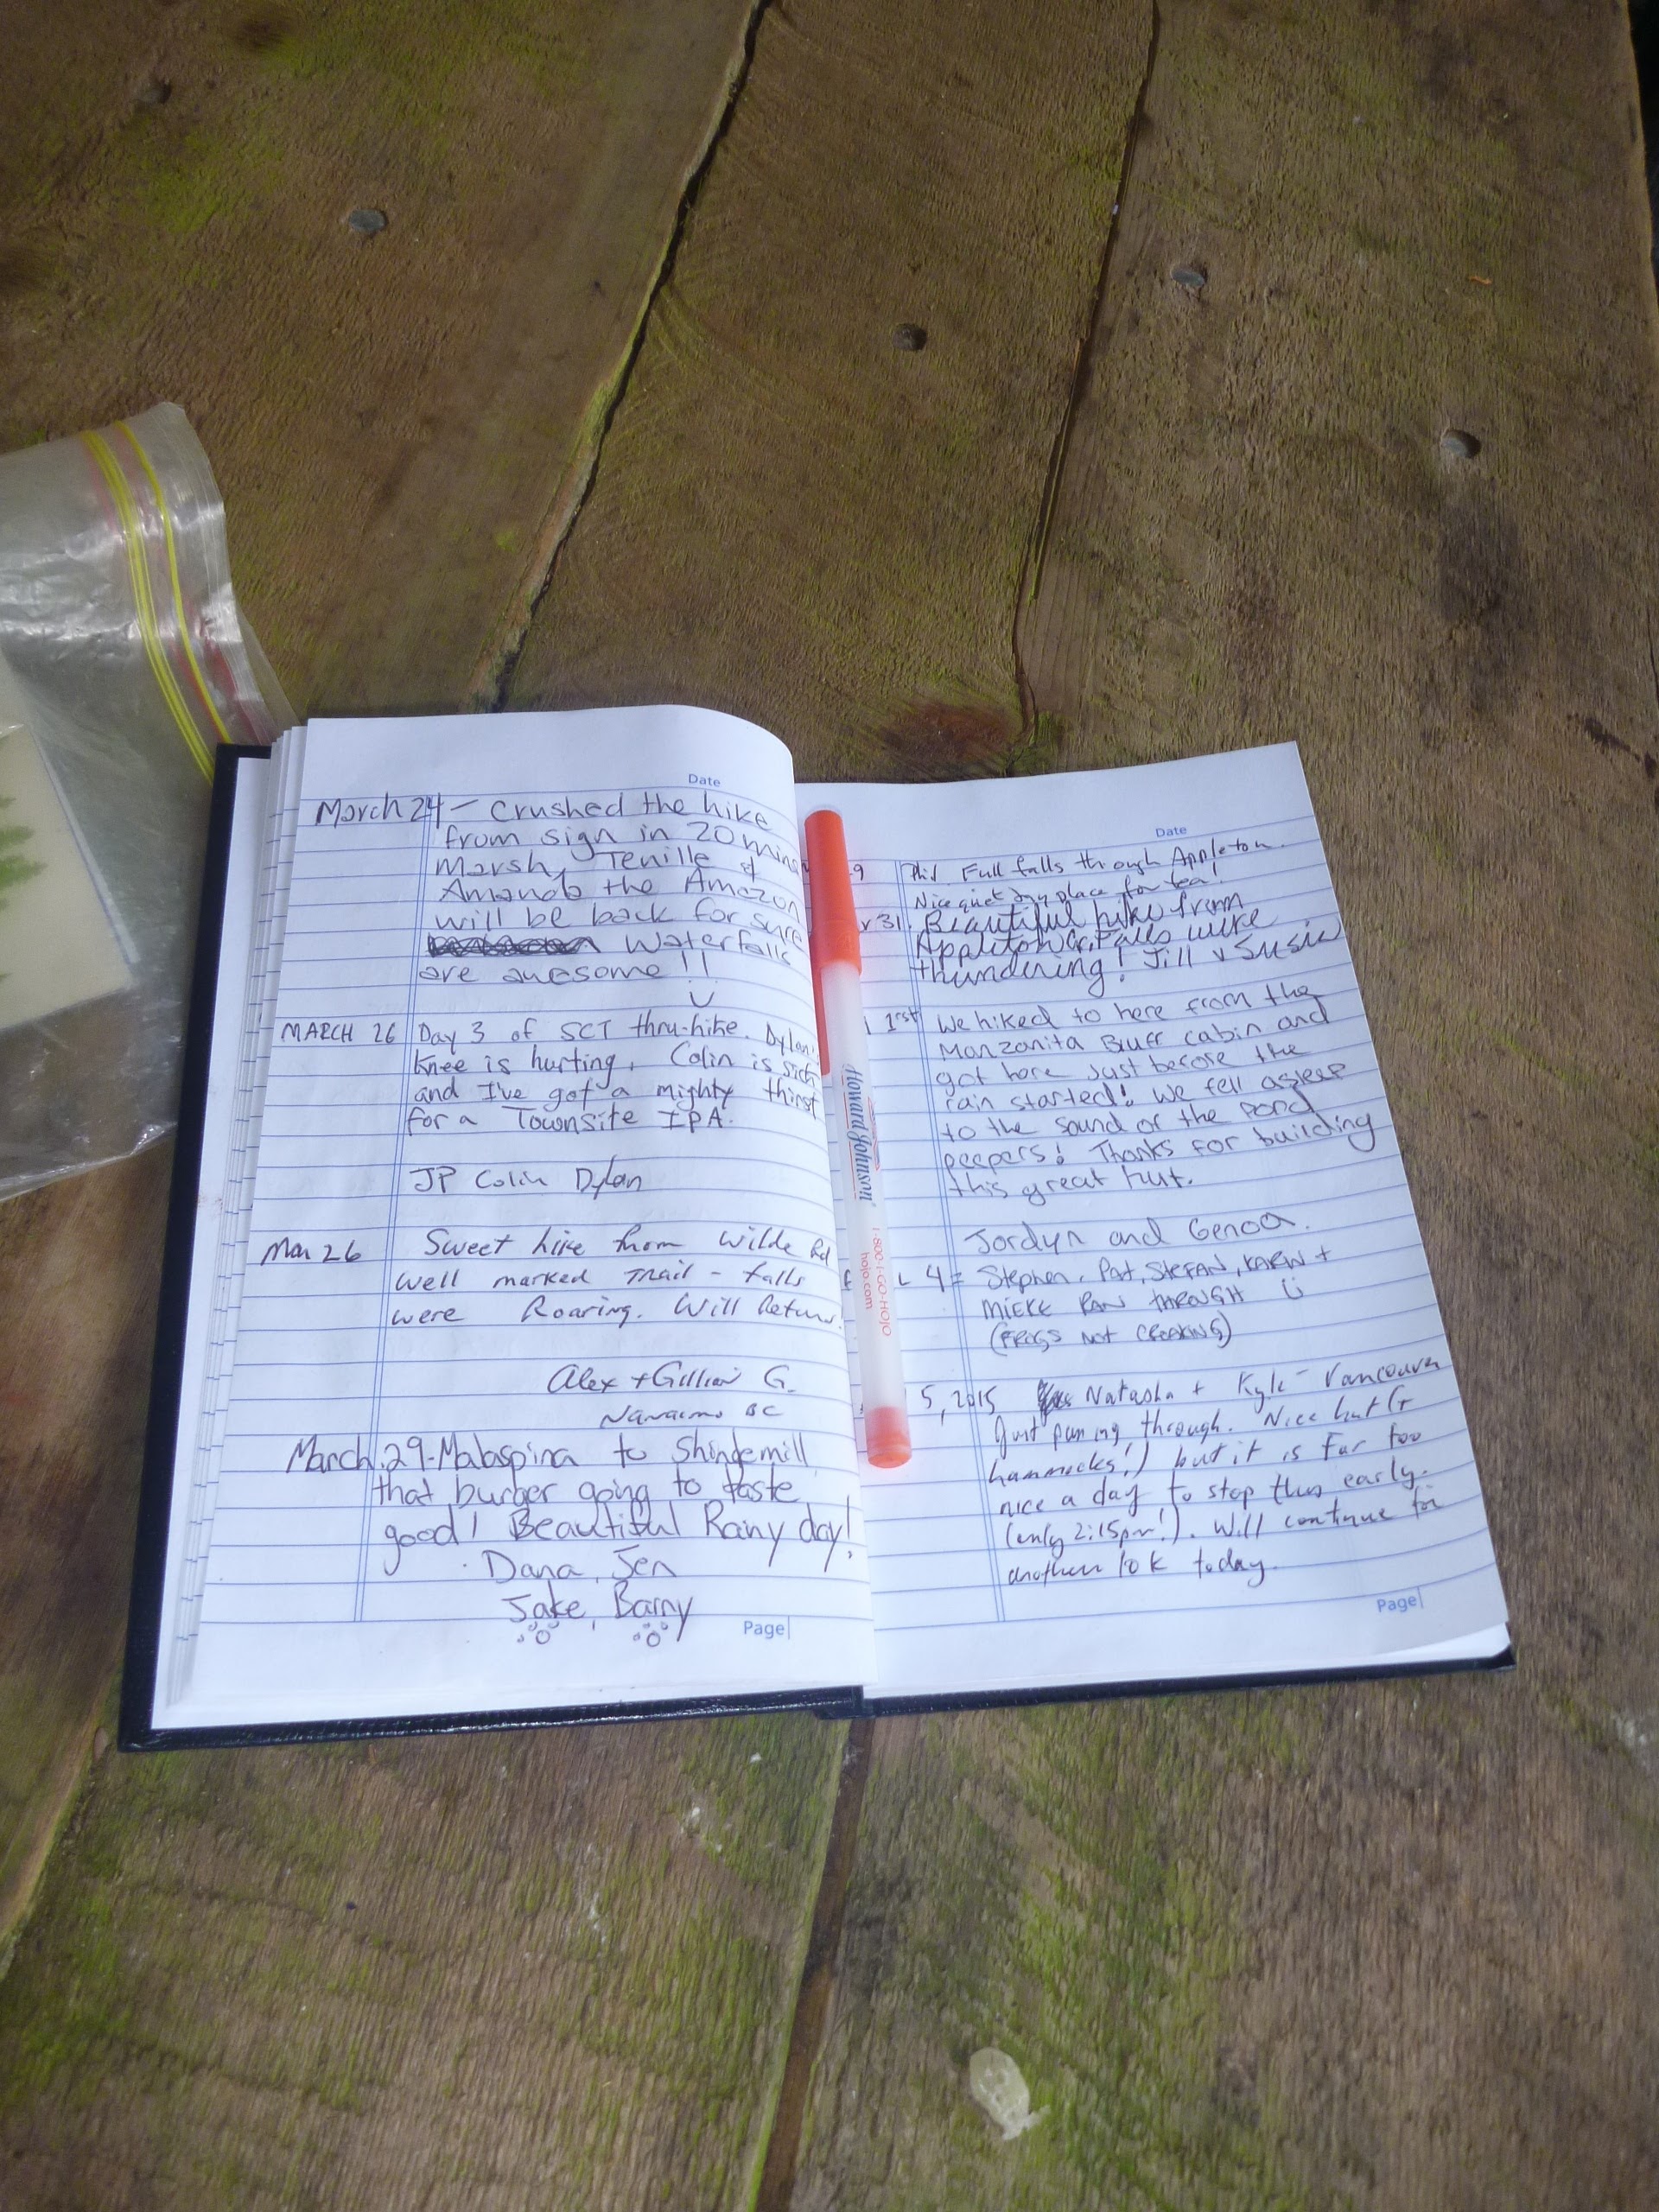 Date
March 24 - Crushed the hike
from sign in 20 mins
Marsh, Tenille &
Amanda the Amazon
will be back for sure
Waterfalls
are awesome!!
MARCH 26 Day 3 of SCT thru-hike. Dylan's
knee is hurting, Colin is sick
and I've got a mighty thirst
for a Townsite IPA.
JP Colin Dylan
Mar 26 Sweet hike from Wilde Rd
well marked Trail - falls
were Roaring. Will Return!
Alex + Gillian G.
Nanaimo BC
March 29 - Malaspina to Shinglemill
that burger going to taste
good! Beautiful Rainy day!
Dana, Jen
Jake, Barny
Page
Date
9 Phil. Full falls through Appleton.
Nice quiet dry place for tea!
31. Beautiful hike from
Appleton Cr. Falls were
thundering! Jill & Susie
1rst We hiked to here from the
Manzanita Bluff cabin and
got here just before the
rain started! We fell asleep
to the sound of the pond
peepers! Thanks for building
this great hut.
Jordyn and Genoa.
4 = Stephen, Pat, STEFAN, KARIN +
MIEKE RAN THROUGH
(FROGS NOT CROAKING)
5, 2015 Natasha + Kyle - Vancouver
Just passing through. Nice hut (&
hammocks!) but it is far too
nice a day to stop this early.
(only 2:15pm!). Will continue for
another 10k today.
Page
Howard Johnson
1-800-I-GO-HOJO
hojo.com